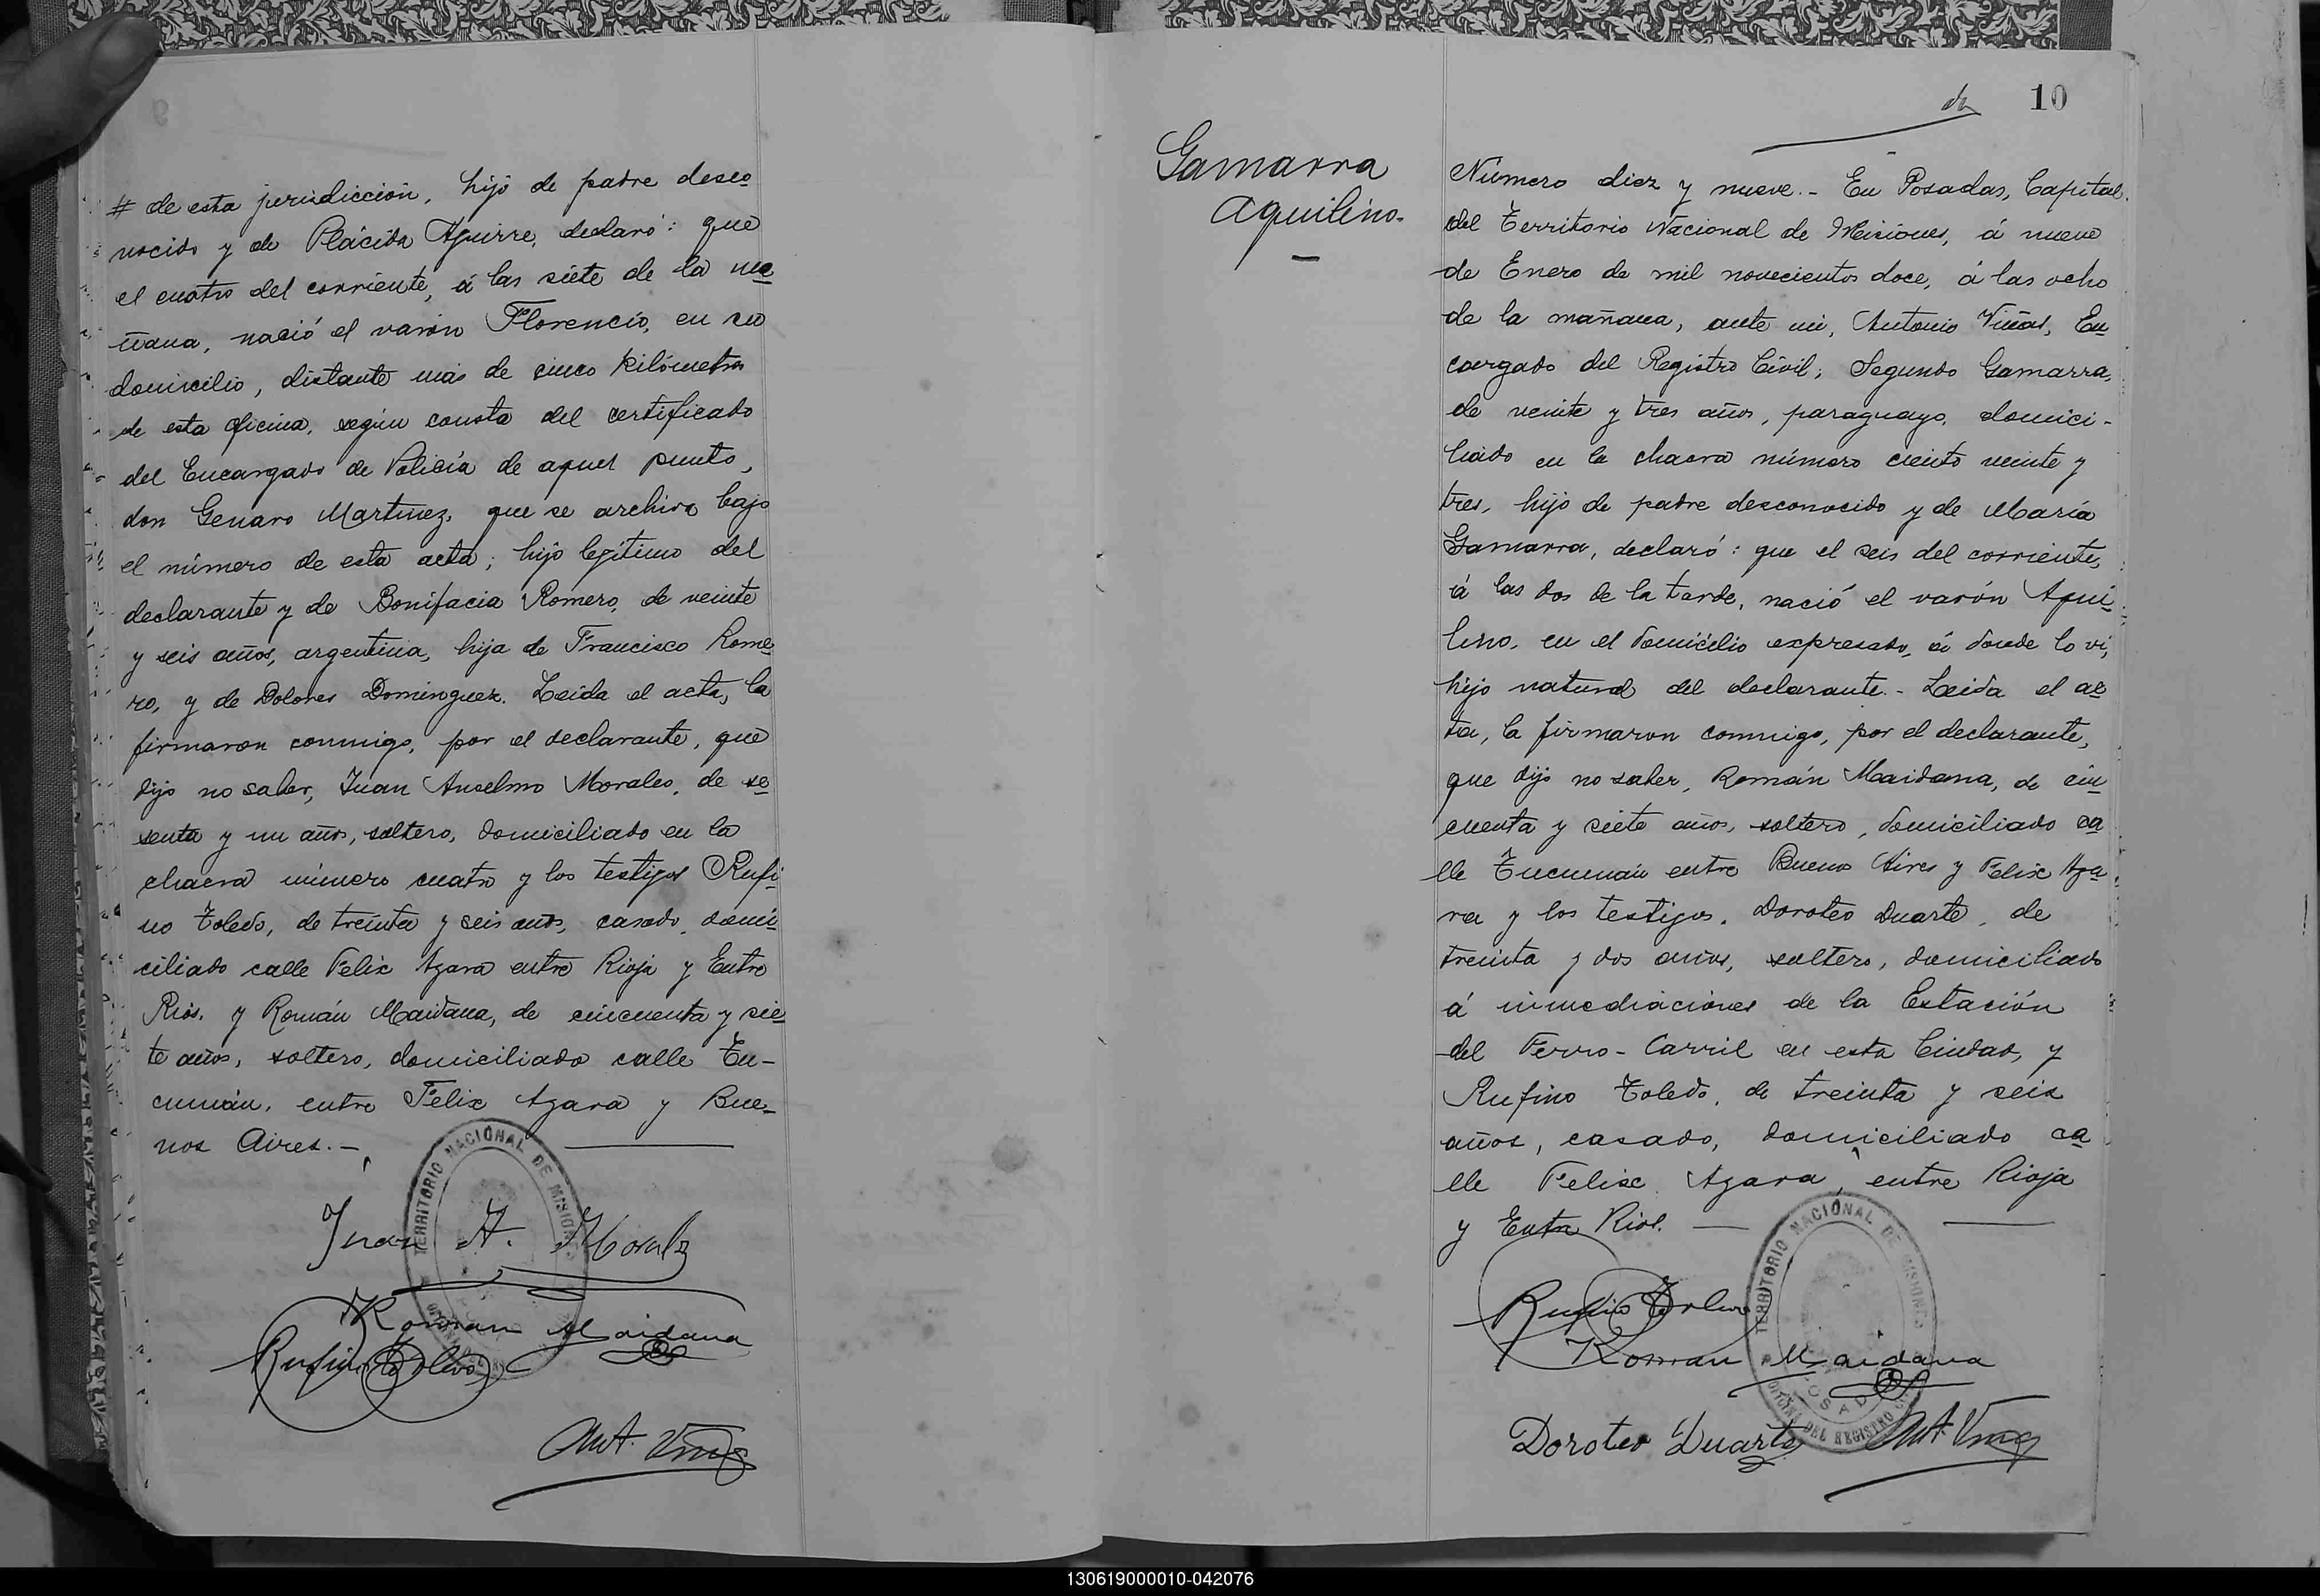 # de esta jurisdicción, hijo de padre desco
nocido y de Plácida Aguirre, declaró: que
el cuatro del corriente, á las siete de la ma
ñana, nació el varón Florencio, en su
domicilio, distante más de cinco kilómetros
de esta oficina, según consta del certificado
del Encargado de Policía de aquel punto,
don Genaro Martinez, que se archiva bajo
el número de esta acta; hijo legítimo del
declarante y de Bonifacia Romero, de veinte
y seis años, argentina, hija de Francisco Rome
ro, y de Dolores Dominguez. Leida el acta, la
firmaron conmigo, por el declarante, que
dijo no saber, Juan Anselmo Morales, de se
senta y un años, soltero, domiciliado en la
chacra número cuatro y los testigos Rufi-
no Toledo, de treinta y seis años, casado, domi-
ciliado calle Felix Azara entre Rioja y Entre
Rios, y Román Maidana, de cincuenta y sie
te años, soltero, domiciliado calle Tu-
cumán, entre Felix Azara y Bue-
nos Aires.-
TERRITORIO NACIONAL DE MISIONES
Juan A. Morales
Roman Maidana
Rufino Toledo
Ant. Viñas
10
Gamarra
Aquilino.-
Número diez y nueve.- En Posadas, Capital
del Territorio Nacional de Misiones, á nueve
de Enero de mil novecientos doce, á las ocho
de la mañana, ante mi, Antonio Viñas, En
cargado del Registro Civil; Segundo Gamarra,
de veinte y tres años, paraguayo, domici-
liado en la chacra número ciento veinte y
tres, hijo de padre desconocido y de María
Gamarra, declaró: que el seis del corriente,
á las dos de la tarde, nació el varón Aqui-
lino, en el domicilio expresado, á donde lo vi,
hijo natural del declarante.- Leida el ac
ta, la firmaron conmigo, por el declarante,
que dijo no saber, Román Maidana, de cin
cuenta y siete años, soltero, domiciliado ca
lle Tucumán entre Buenos Aires y Felix Aza
ra y los testigos, Doroteo Duarte, de
treinta y dos años, soltero, domiciliado
á inmediaciones de la Estación
del Ferro-Carril en esta Ciudad, y
Rufino Toledo, de treinta y seis
años, casado, domiciliado ca
lle Felix Azara, entre Rioja
y Entre Rios.
TERRITORIO NACIONAL DE MISIONES
POSADAS
OFICINA DEL REGISTRO CIVIL
Rufino Toledo
Roman Maidana
Doroteo Duarte
Ant. Viñas
130619000010-042076